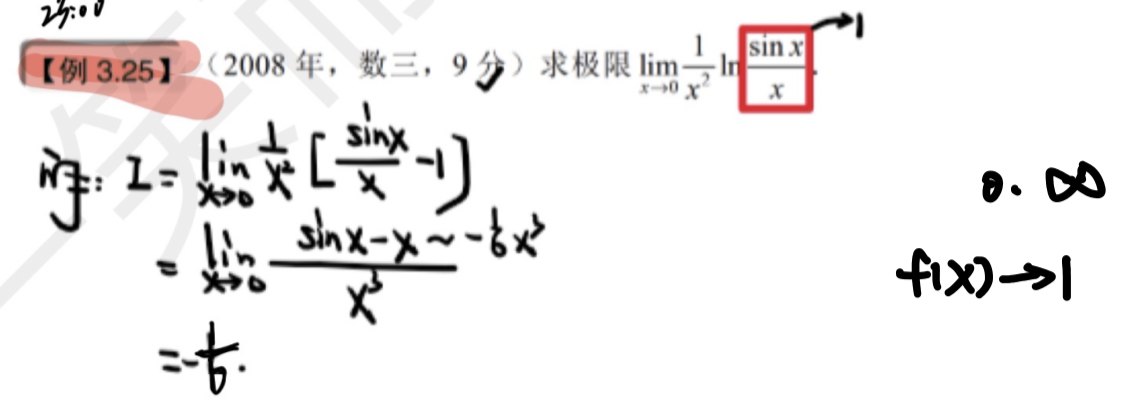 【例 3.25】（2008 年，数三，9 分）求极限 lim_{x→0} \frac{1}{x^2} ln \frac{sin x}{x}. →1
解: I = lim_{x→0} \frac{1}{x^2} [\frac{sinx}{x} -1]
0·∞
= lim_{x→0} \frac{sinx-x ~ -\frac{1}{6}x^3}{x^3}
f(x)→1
= -\frac{1}{6}.